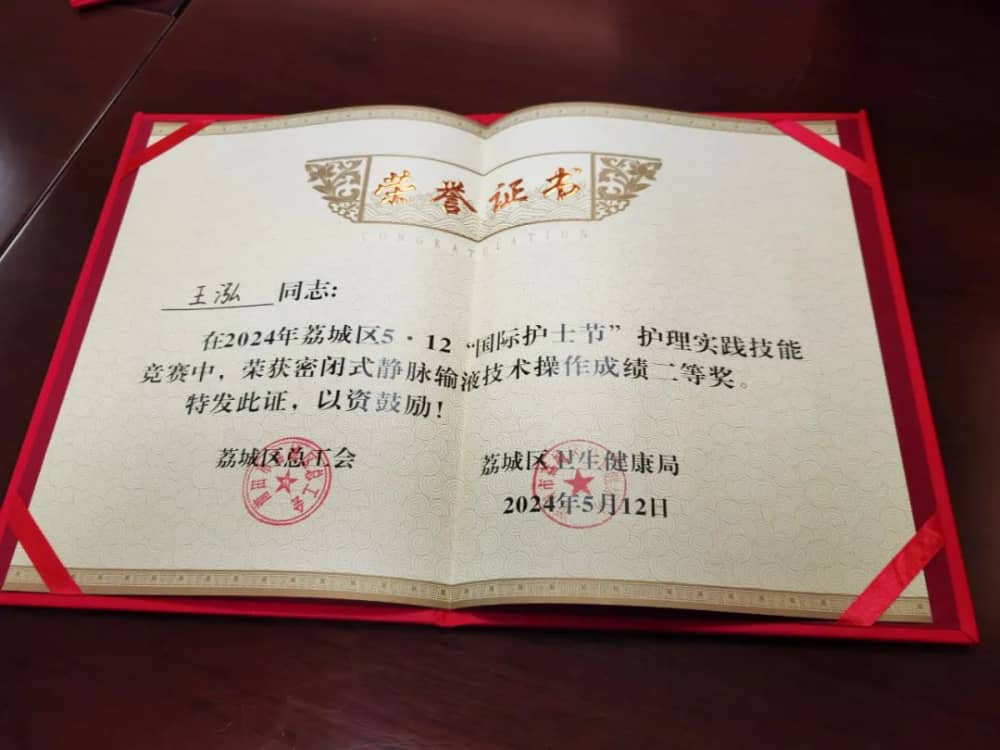 荣誉证书
CONGRATULATION
王泓 同志:
在2024年荔城区5·12“国际护士节”护理实践技能
竞赛中，荣获密闭式静脉输液技术操作成绩二等奖。
特发此证，以资鼓励！
荔城区总工会
荔城区卫生健康局
2024年5月12日